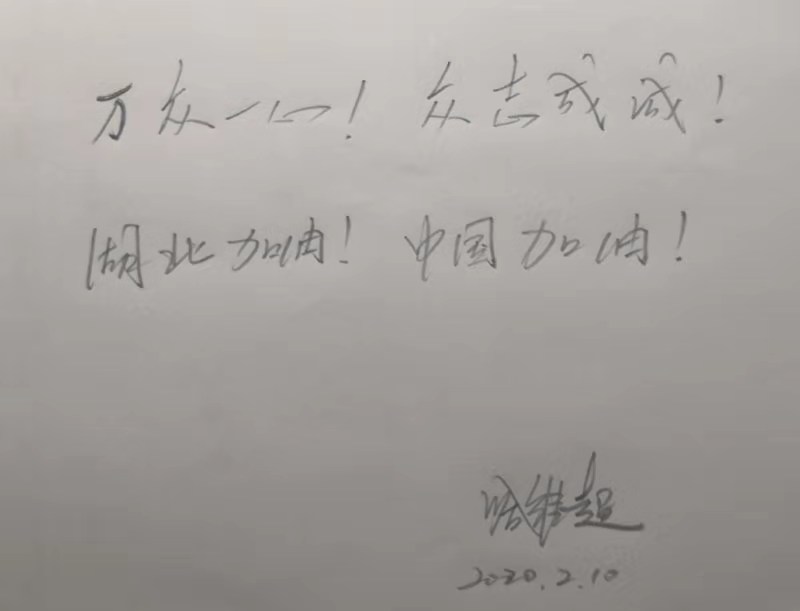 万众一心！ 众志成诚！
湖北加油！ 中国加油！
哈维超
2020.2.10